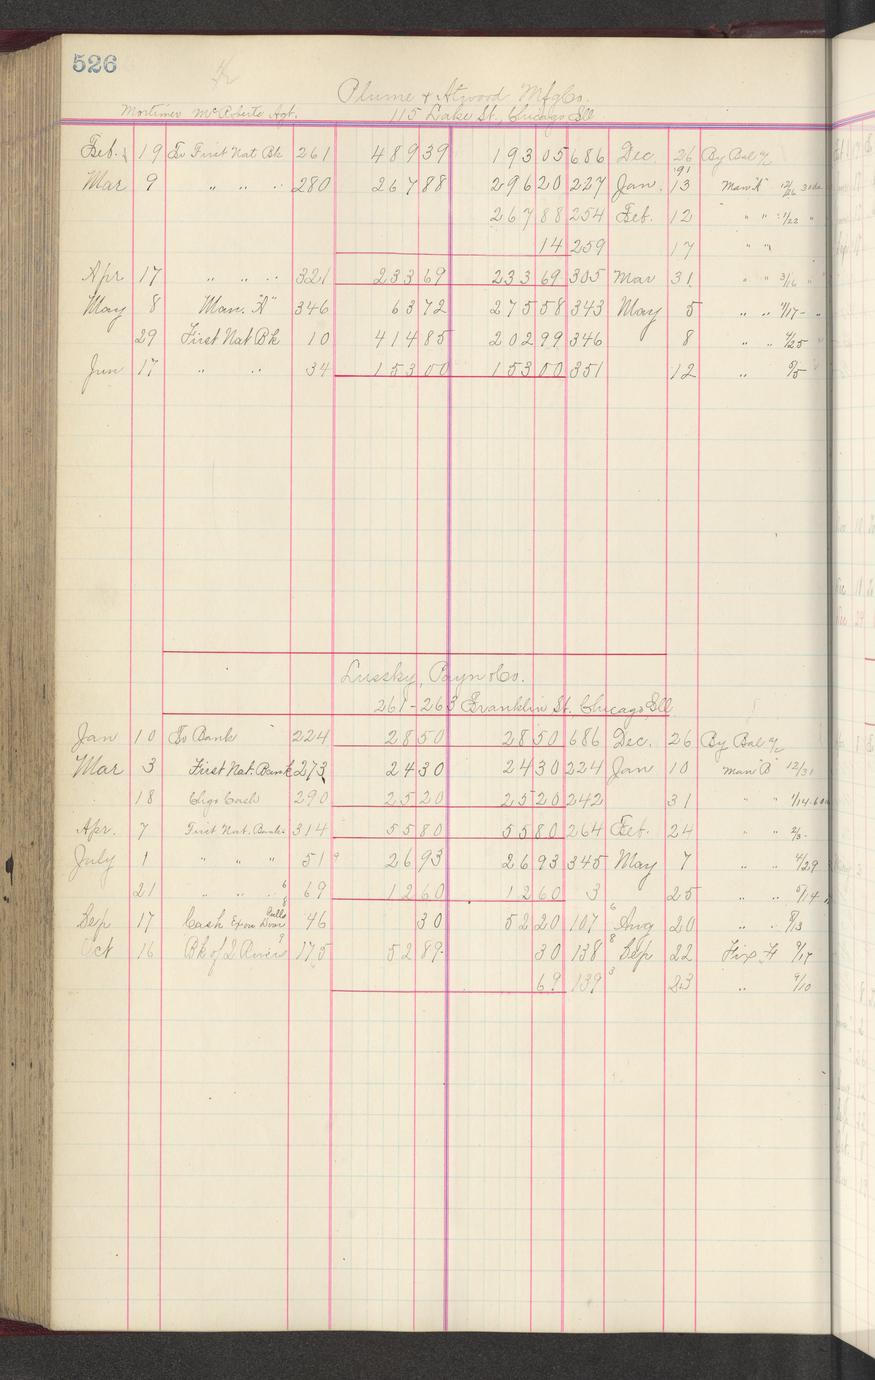 526
Plume & Atwood Mfg Co.
Mortimer McRoberts Agt. 115 Lake St., Chicago Ill
Feb. 19 To First Nat Bk 261 489 39 193 05 686 Dec. 26 By Bal
'91
Mar 9 " " " 280 267 88 296 20 227 Jan. 13 Man "A" 12/26
267 88 254 Feb. 12 " " 1/22 "
14 259 17 " "
Apr 17 " " " 321 233 69 233 69 305 Mar 31 " " 3/16 "
May 8 Man. "A" 346 63 72 275 58 343 May 5 " " 4/17 - "
29 First Nat Bk 10 414 85 202 99 346 8 " " 4/25 "
Jun 17 " " 34 153 00 153 00 351 12 " 5/5
Lussky, Payn & Co.
261-263 Franklin St. Chicago Ill
Jan 10 To Bank 224 28 50 28 50 686 Dec. 26 By Bal
Mar 3 First Nat. Bank 273 24 30 24 30 224 Jan 10 Man "B" 12/31
18 Chgo Cash 290 25 20 25 20 242 31 " " 1/14
Apr. 7 First Nat. Bank 314 55 80 55 80 264 Feb. 24 " " 2/3 -
July 1 " " " 51 26 93 26 93 345 May 7 " " 4/29
21 " " " 69 12 60 12 60 3 25 " " 5/14
Sep 17 Cash 46 30 52 20 107 Aug 20 " " 8/13
Oct 16 Bk of 2 Rivers 175 52 89 30 138 Sep 22 9/17
69 139 23 " 9/10